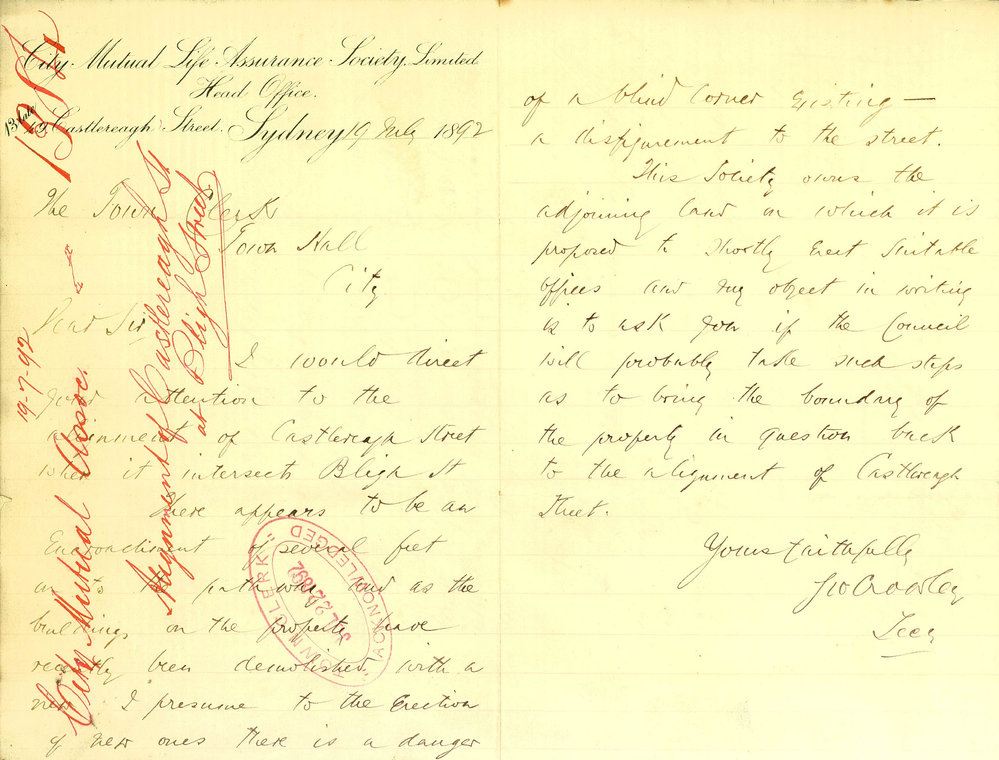 City Mutual Life Assurance Society Limited
Head Office.
Castlereagh Street. Sydney 19 July 1892
The Town Clerk
Town Hall
City
Dear Sir
I would direct
your attention to the
alignment of Castlereagh Street
where it intersects Bligh St
There appears to be an
Encroachment of several feet
on to the pathway and as the
buildings on the property have
recently been demolished with a
view I presume to the Erection
of new ones there is a danger
of a blind corner Existing —
a disfigurement to the street.
This Society owns the
adjoining land on which it is
proposed to shortly Erect suitable
offices and my object in writing
is to ask you if the Council
will probably take such steps
as to bring the boundary of
the property in question back
to the alignment of Castlereagh
Street.
Yours faithfully
Geo Crowley
Secy
19-7-92
City Mutual Assoc.
Alignment of Castlereagh St
at Bligh Street
"TOWN CLERK"
JUL 22 1892
"ACKNOWLEDGED"